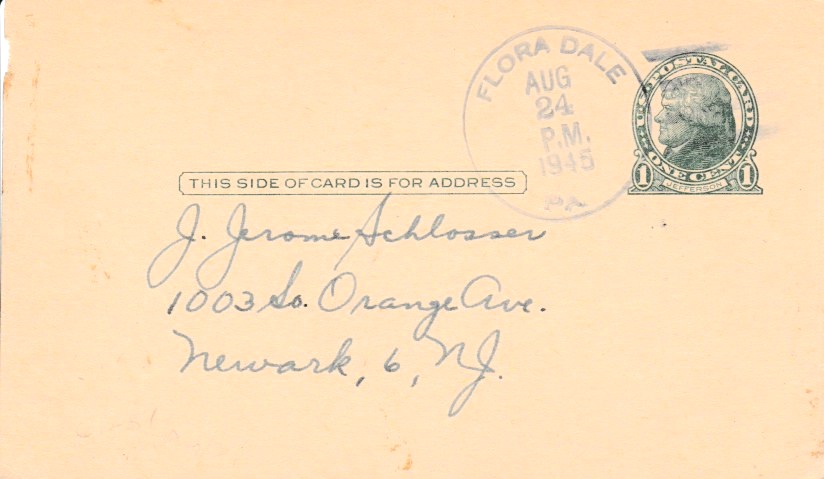 FLORA DALE
AUG
24
P.M.
1945
PA
U.S. POSTAL CARD
ONE CENT
1 JEFFERSON 1
THIS SIDE OF CARD IS FOR ADDRESS
J. Jerome Schlosser
1003 So. Orange Ave.
Newark, 6, N.J.